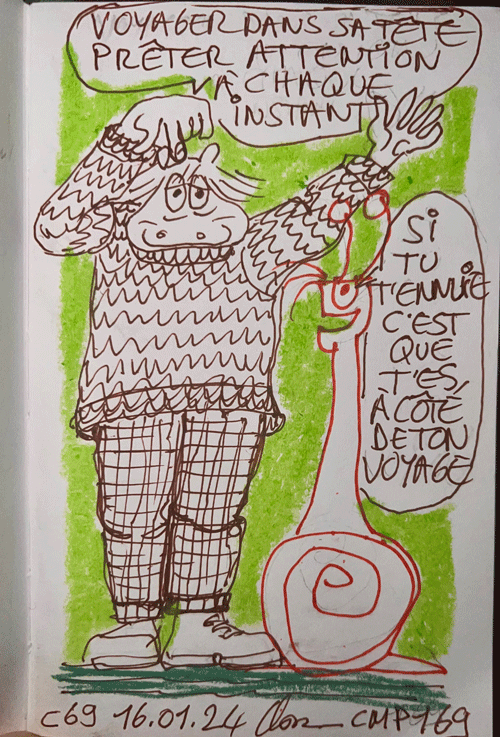 VOYAGER DANS SA TÊTE
PRÊTER ATTENTION
À CHAQUE
INSTANT
SI
TU
T'ENNUIE
C'EST
QUE
T'ES
À CÔTÉ
DE TON
VOYAGE
C69 16.01.24 CMP169